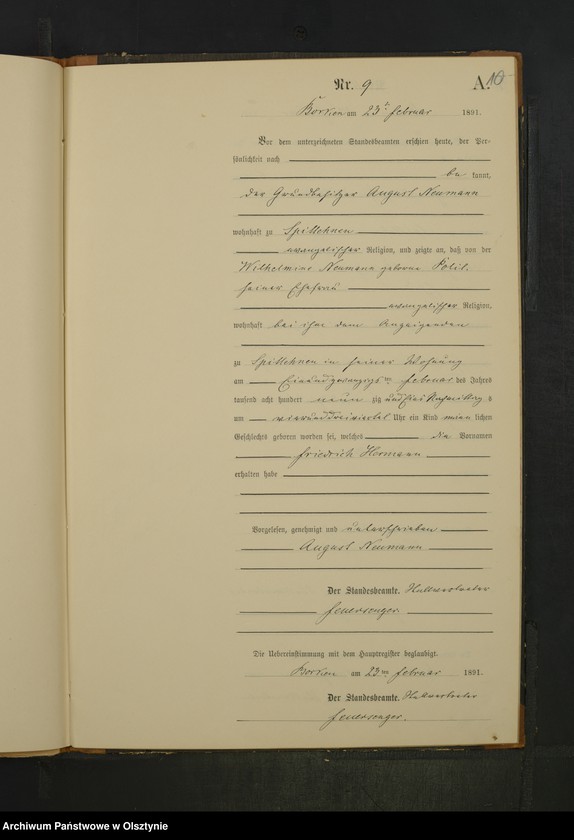 Nr. 9
A. 10
Borken am 23 ten Februar 1891.
Vor dem unterzeichneten Standesbeamten erschien heute, der Per-
sönlichkeit nach
be kannt,
der Grundbesitzer August Neumann
wohnhaft zu
evangelischer Religion, und zeigte an, daß von der
Wilhelmine Neumann geborne
seiner Ehefrau
evangelischer Religion,
wohnhaft bei ihm dem Anzeigenden
zu in seiner Wohnung
am Februar des Jahres
tausend acht hundert neun zig und eins Nachmittags
um Uhr ein Kind männlichen
Geschlechts geboren worden sei, welches die Vornamen
Friedrich Hermann
erhalten habe
Vorgelesen, genehmigt und unterschrieben
August Neumann
Der Standesbeamte.
Die Uebereinstimmung mit dem Hauptregister beglaubigt.
Borken am 23 ten Februar 1891.
Der Standesbeamte.
Archiwum Państwowe w Olsztynie